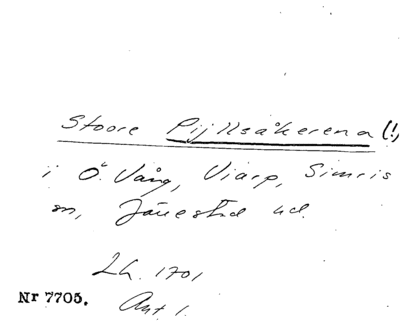 Stoore Pijllsåkerena (!)
i Ö. Vång, Viarp, Simris
sn, Järrestad hd.
Lh. 1701
Ant 1.
Nr 7705.